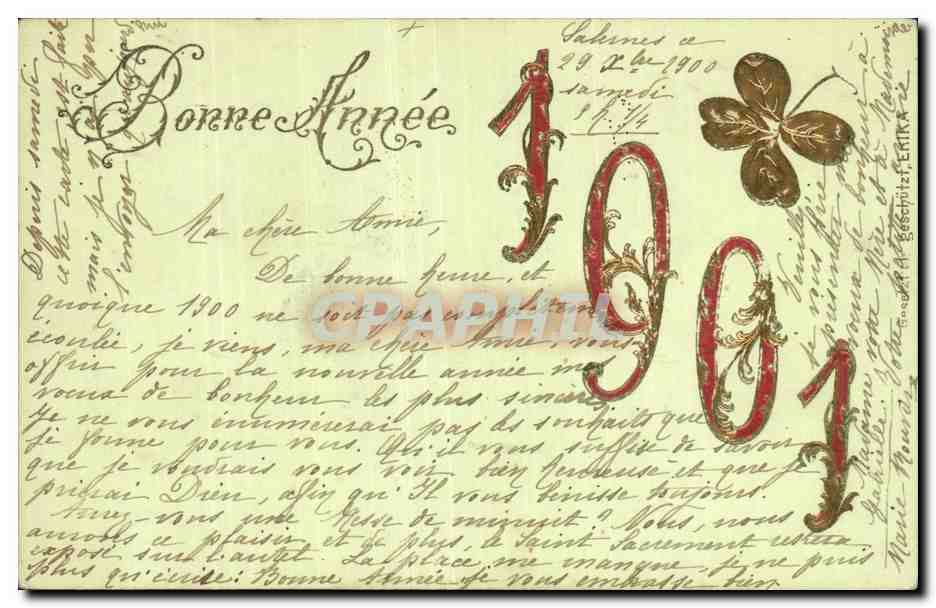 Bonne Année
1901
Salernes ce
29 Xbre 1900
samedi
Ma chère Amie,
De bonne heure, et
quoique 1900 ne soit pas complètement
écoulée, je viens, ma chère Amie, vous
offrir pour la nouvelle année mes
vœux de bonheur les plus sincères.
Je ne vous énumérerai pas les souhaits que
je forme pour vous. Qu'il vous suffise de savoir
que je voudrais vous voir bien heureuse et que je
prierai Dieu, afin qu'Il vous bénisse toujours.
Aurez-vous une Messe de minuit? Nous, nous
aurons ce plaisir et de plus, le Saint Sacrement restera
exposé sur l'autel. La place me manque, je ne puis
plus qu'écrire: Bonne Année. Je vous embrasse bien
Depuis samedi
cette carte est faite
mais je n'ai pu
Veuillez
je vous prie
présenter mes
vœux de bonjour à
Madame votre Mère et à Mademoiselle
Votre
Marie
geschützt, ERIKA
CPAPHIL